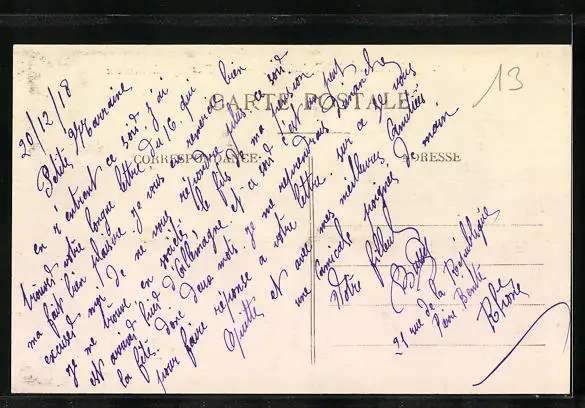 13
CARTE POSTALE
CORRESPONDANCE
ADRESSE
20/12/18
Petite Marraine
en r'entrant ce soir j'ai
trouvé votre longue lettre du 16 qui bien
ma fait bien plaisir je vous en remercie
excusez moi de ne vous répondre plus ce soir
je me trouve en société le fils de ma patronne
est arrivé hier d'Allemagne et ce soir c'est
la fête donc deux mots je me reprendrais Dimanche
pour faire réponse a votre lettre. sur ce je vous
quitte et avec mes meilleures Amitiés
une Amicale poignée de main
Votre filleul
21 rue de la République
Pierre Bénite
Rhône